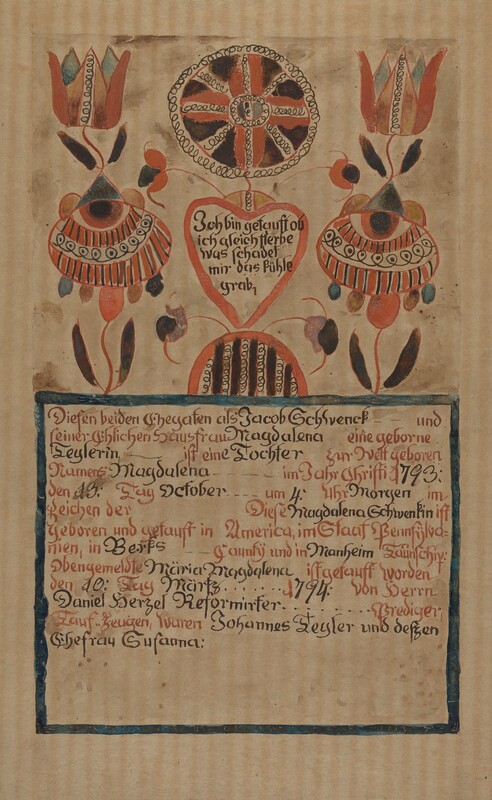 Ich bin getauft ob
ich gleich sterbe
was schadet
mir das kühle
grab,
Diesen beiden Ehegaten als Jacob Schwenck und
seiner Ehlichen Hausfrau Magdalena eine geborne
Teylerin ist eine Tochter zur Welt geboren
Namens Magdalena im Jahr Christi 1793:
den 13: Tag October um 4: Uhr Morgen im
Zeichen der Diese Magdalena Schwenkin ist
geboren und getauft in America, im Staat Pennsylva-
nien, in Berks Caunty und in Manheim Taunschip:
Obengemeldte Maria Magdalena ist getauft worden
den 10: Tag Märtz 1794: von Herrn
Daniel Herzel Reformirter Prediger,
Tauf-Zeugen, waren Johannes Teyler und deßzen
Ehefrau Susanna: